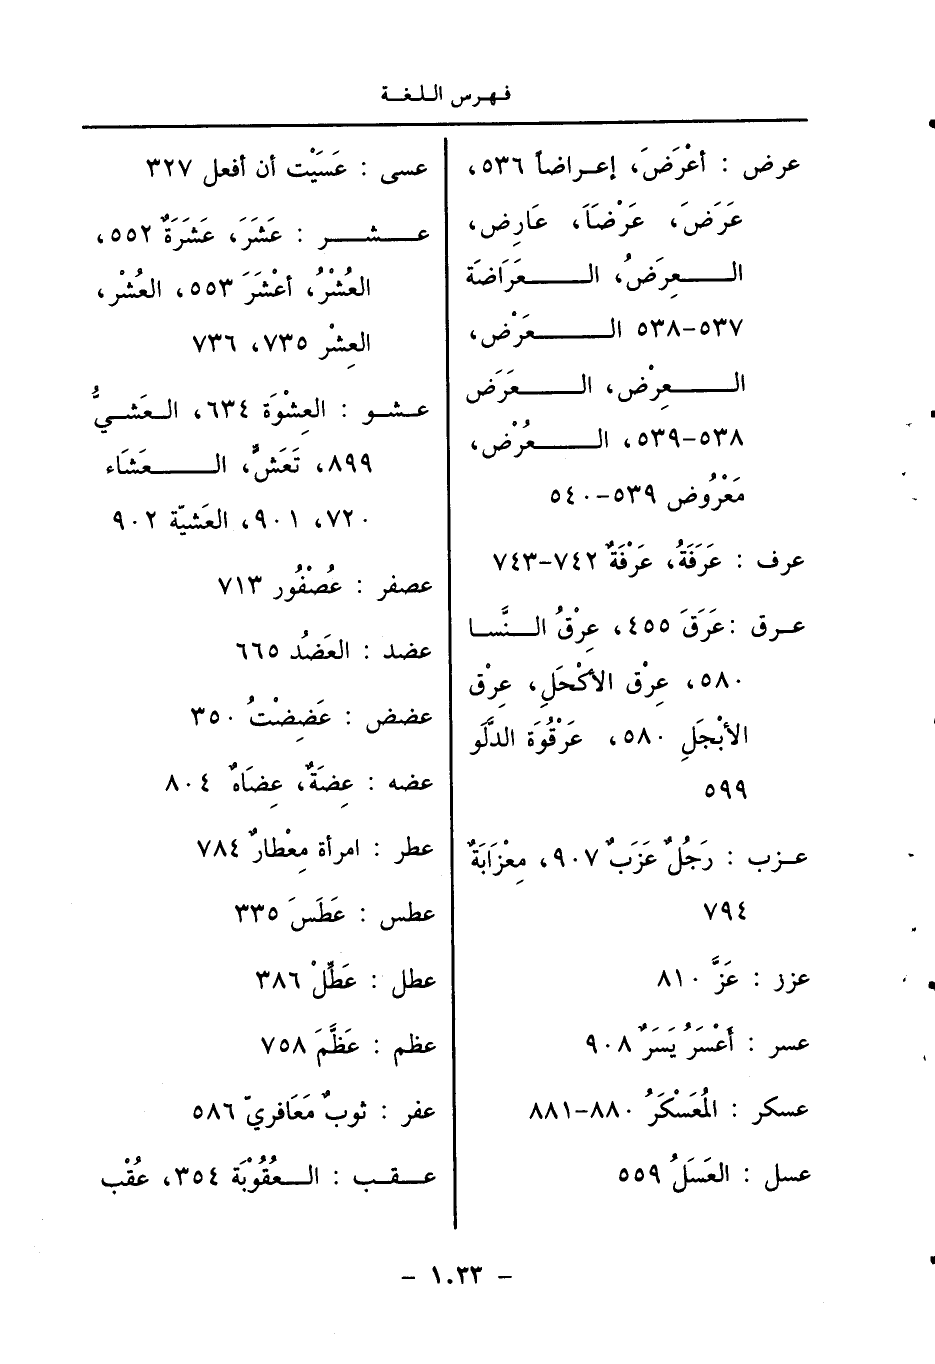 فهرس اللغة
عرض : أعْرَضَ، إعراضاً ٥٣٦،
عَرَضَ، عَرْضَاَ، عَارِض،
العِرَضُ، العَرَاضَة
٥٣٧-٥٣٨ العَرْض،
العِرْض، العَرَض
٥٣٨-٥٣٩، العُرْض،
مَعْرُوض ٥٣٩-٥٤٠
عرف : عَرَفَةُ، عَرْفَةٌ ٧٤٢-٧٤٣
عرق :عَرَقَ ٤٥٥، عِرْقُ النَّسا
٥٨٠، عِرْق الأكْحَلِ، عِرْق
الأبْجَلِ ٥٨٠، عَرْقُوَة الدَّلَو
٥٩٩
عزب : رَجُلٌ عَزَبٌ ٩٠٧، مِعْزَابَةٌ
٧٩٤
عزز : عَزَّ ٨١٠
عسر : أَعْسَرُ يَسَرٌ ٩٠٨
عسكر : المُعَسْكَرُ ٨٨٠-٨٨١
عسل : العَسَلُ ٥٥٩
عسى : عَسَيْت أن أفعل ٣٢٧
عشر : عَشَرَ، عَشَرَةٌ ٥٥٢،
العُشْرُ، أعْشَرَ ٥٥٣، العُشْر،
العِشْر ٧٣٥، ٧٣٦
عشو : العِشْوَة ٦٣٤، العَشيُّ
٨٩٩، تَعَشٌّ، العَشَاء
٧٢٠، ٩٠١، العَشيّة ٩٠٢
عصفر : عُصْفُور ٧١٣
عضد : العَضُد ٦٦٥
عضض : عَضِضْتُ ٣٥٠
عضه : عِضَةٌ، عِضَاهٌ ٨٠٤
عطر : امرأة مِعْطارٌ ٧٨٤
عطس : عَطَسَ ٣٣٥
عطل : عَطِّلْ ٣٨٦
عظم : عَظَّمَ ٧٥٨
عفر : ثوبٌ مَعَافريّ ٥٨٦
عقب : العُقُوبَة ٣٥٤، عُقْب
- ١٠٣٣ -